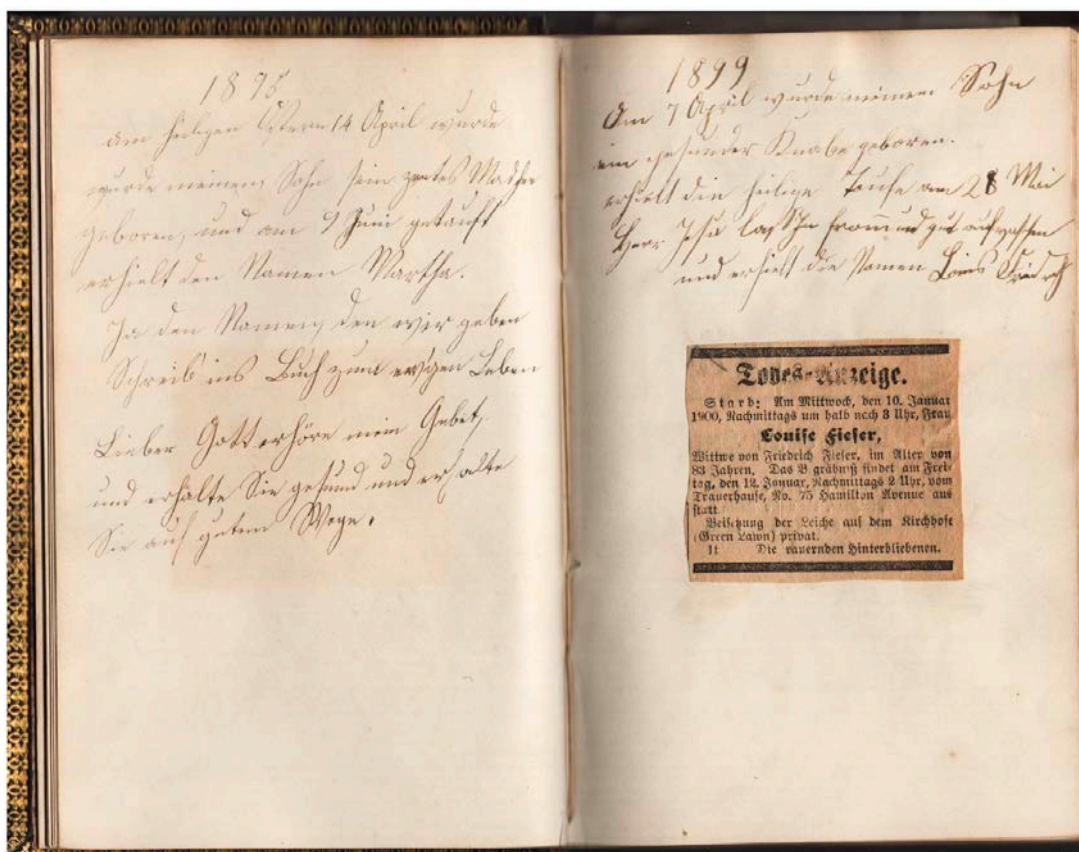 1895
am heiligen Ostern 14 April wurde
wurde meinem Sohn sein zweites Madchen
geboren, und am 9 Juni getauft
erhielt den Namen Martha.
Ja den Namen, den wir geben
Schreib ins Buch zum ew'gen Leben
Lieber Gott erhöre mein Gebet,
und erhalte Sie gesund und erhalte
Sie auf gutem Wege.
1899
Am 7 April wurde meinem Sohn
ein gesunder Knabe geboren.
erhielt die heilige Taufe am 28 Mai
Herr Jesu lass Ihn fromm und gut aufwachsen
und erhielt die Namen Louis Friedrich
Todes-Anzeige.
Starb: Am Mittwoch, den 10. Januar
1900, Nachmittags um halb nach 3 Uhr, Frau
Louise Fieser,
Wittwe von Friedrich Fieser, im Alter von
83 Jahren. Das B gräbniß findet am Frei-
tag, den 12. Januar, Nachmittags 2 Uhr, vom
Trauerhause, No. 75 Hamilton Avenue aus
statt
Beisetzung der Leiche auf dem Kirchhofe
(Green Lawn) privat.
1t Die rauernden Hinterbliebenen.